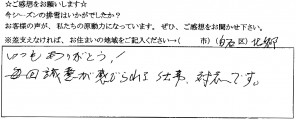 ☆ご感想をお願いします☆
今シーズンの排雪はいかがでしたか？
お客様の声が、私たちの原動力になっています。ぜひ、ご感想をお聞かせ下さい。
※差支えなければ、お住まいの地域をご記入ください→( 市) (白石区) 北郷
いつもありがとう！
毎回誠意が感じられる仕事、対応です。